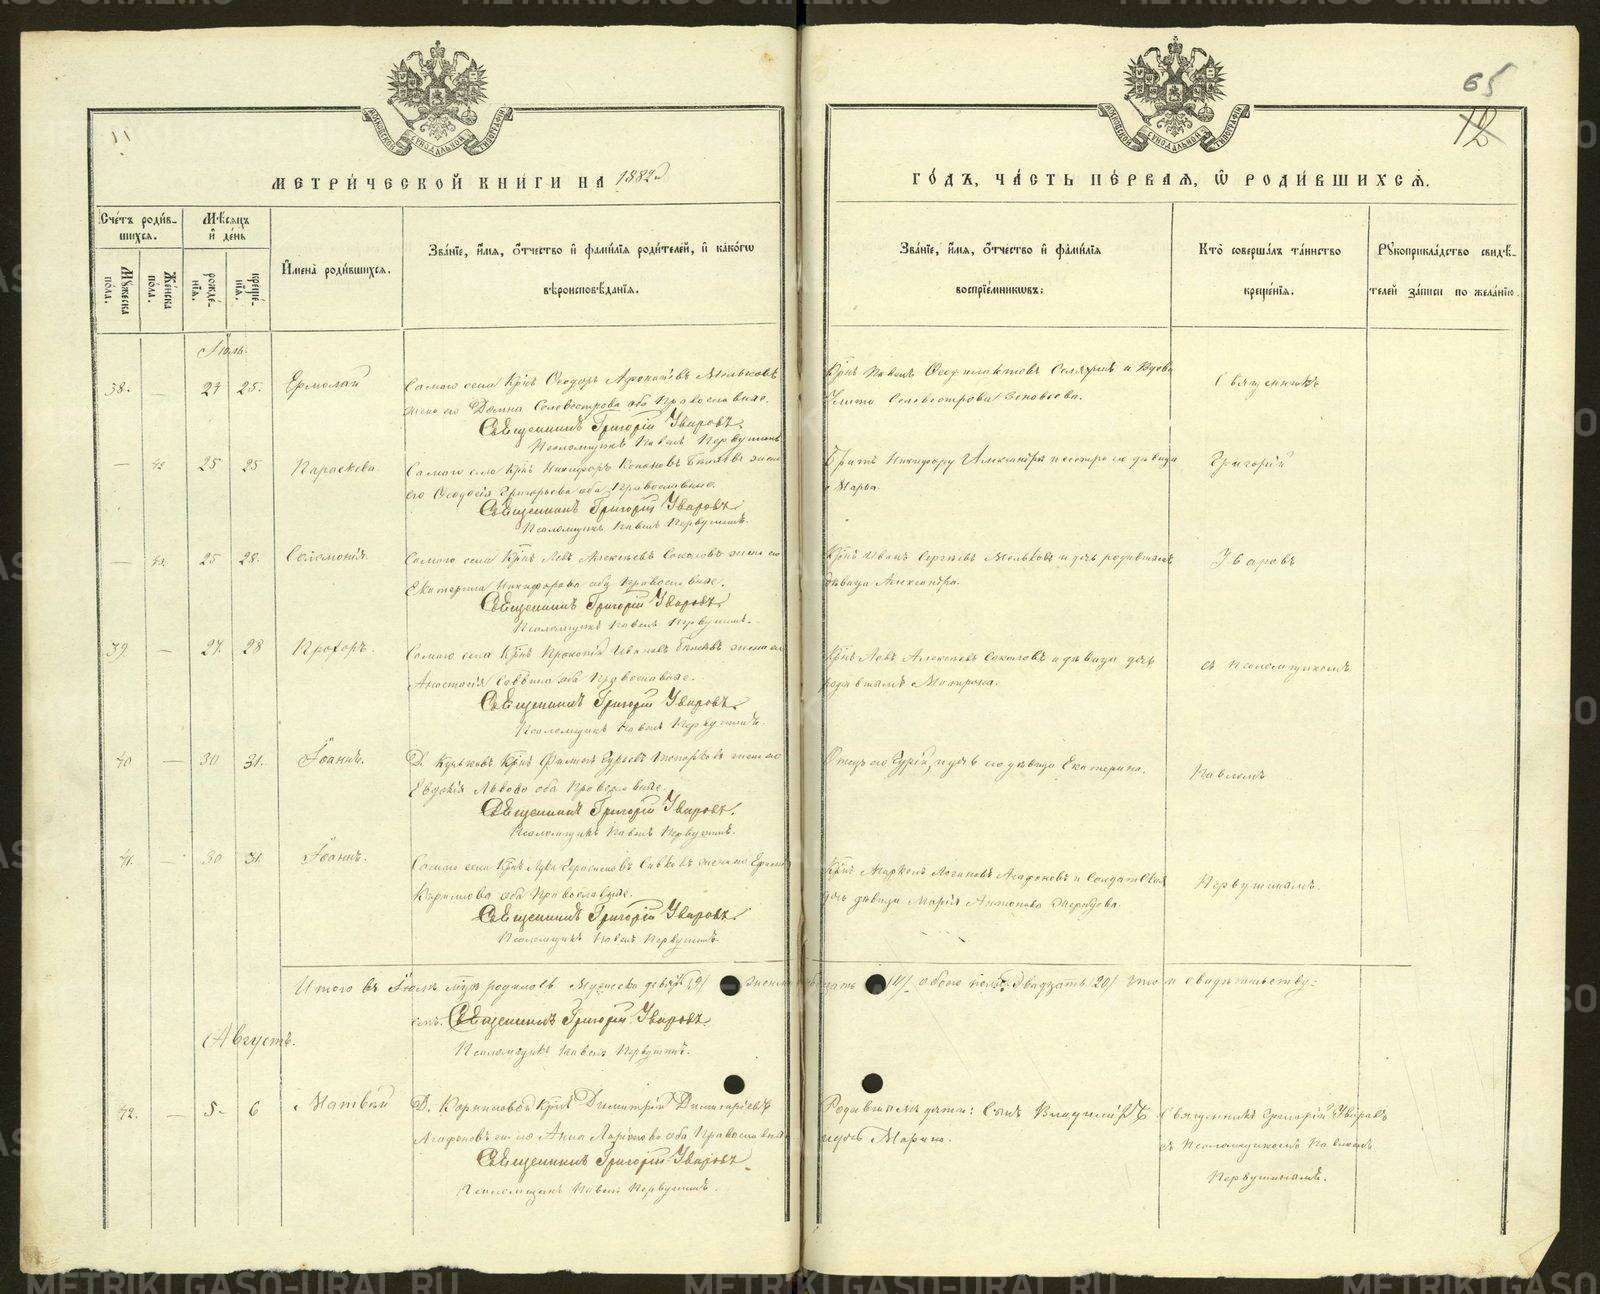 65
12
11
МЕТРИ́ЧЕСКОЙ КНИГИ НА 1882й
ГО́ДЪ, ЧА́СТЬ ПЕ́РВАЯ, Ѡ РОДИ́ВШИХСѦ.
МОСКОВСКОЙ СѴНОДАЛЬНОЙ ТИПОГРАФІИ
МОСКОВСКОЙ СѴНОДАЛЬНОЙ ТИПОГРАФІИ
Сче́тъ роди́в-
шихсѧ.
Мѣ́сѧцъ
и҆ де́нь
Мꙋ́жеска по́ла.
Же́нска по́ла.
рожде́-нїѧ.
креще́-нїѧ.
И҆мена̀ роди́вшихсѧ.
Зва́нїе, и҆́мѧ, о҆́тчество и҆ фами́лїѧ роди́телей, и҆ како́гѡ
вѣроисповѣ́данїѧ.
Зва́нїе, и҆́мѧ, о҆́тчество и҆ фами́лїѧ
воспрїе́мникѡвъ:
Кто̀ соверша́лъ та́инство
креще́нїѧ.
Рꙋкоприкла́дство свидѣ́-
телей за́писи по жела́нїю.
Іюль.
38. — 24 25. Ермолай
Самаго села Крнъ Ѳеодоръ Мельковъ
жена его Домна Селвестрова оба Православные.
Священникъ Григорій Уваровъ.
Псаломщикъ Павелъ Первушинъ
Крнъ Павелъ и Вдова
Селвестрова
Священникъ
— 42 25 25 Параскева
Самаго села Крнъ Никифоръ жена
его Ѳеодосія Григорьева оба Православные.
Священникъ Григорій Уваровъ.
Псаломщикъ Павелъ Первушинъ.
Братъ Никифору Александръ и сестра ея дѣвица
Марья.
Григорій
— 43. 25 28. Соломонія
Самаго села Крнъ Левъ Алексѣевъ Соколовъ жена его
Екатерина Никифорова оба Православные.
Священникъ Григорій Уваровъ.
Псаломщикъ Павелъ Первушинъ.
Крнъ Иванъ Сергѣевъ Мельковъ и дочь родившаго
дѣвица Александра.
Уваровъ
39. — 27. 28 Прохоръ.
Самаго села Крнъ Прокопій Ивановъ жена его
Анастасія Саввина оба Православные.
Священникъ Григорій Уваровъ.
Псаломщикъ Павелъ Первушинъ.
Крнъ Левъ Алексѣевъ Соколовъ и дѣвица дочь
Матрона.
съ псаломщикомъ
40 — 30 31. Іоаннъ.
Д. Крнъ Филиппъ Гурьевъ жена его
Евдокія Львова оба Православные.
Священникъ Григорій Уваровъ.
Псаломщикъ Павелъ Первушинъ.
Отецъ его Гурій, и дочь его дѣвица Екатерина.
Павломъ
41. — 30 31. Іоаннъ.
Самаго села Крнъ Лука Герасимовъ Сивковъ жена его
Кирилова оба Православные.
Священникъ Григорій Уваровъ.
Псаломщикъ Павелъ Первушинъ.
Крнъ Маркелъ Логиновъ Агафоновъ и Солдатская
дочь дѣвица Марія Антонова
Первушинымъ.
Итого въ Іюлѣ родилось Мужеска девять /9/ женска /11/. обоего пола двадцать /20/ что и свидѣтельству:
емъ. Священникъ Григорій Уваровъ.
Псаломщикъ Павелъ Первушинъ.
Августъ.
42. — 5 6 Матвѣй
Д. Корниловой Крнъ Димитрій Димитріевъ
Агафоновъ же. его Анна Ларіонова оба Православные
Священникъ Григорій Уваровъ.
Псаломщикъ Павелъ Первушинъ.
Родившаго дѣти: Сынъ Владиміръ
и дочь Марина.
Священникъ Григорій Уваровъ
съ Псаломщикомъ Павломъ
Первушинымъ.
METRIKI.GASO-URAL.RU